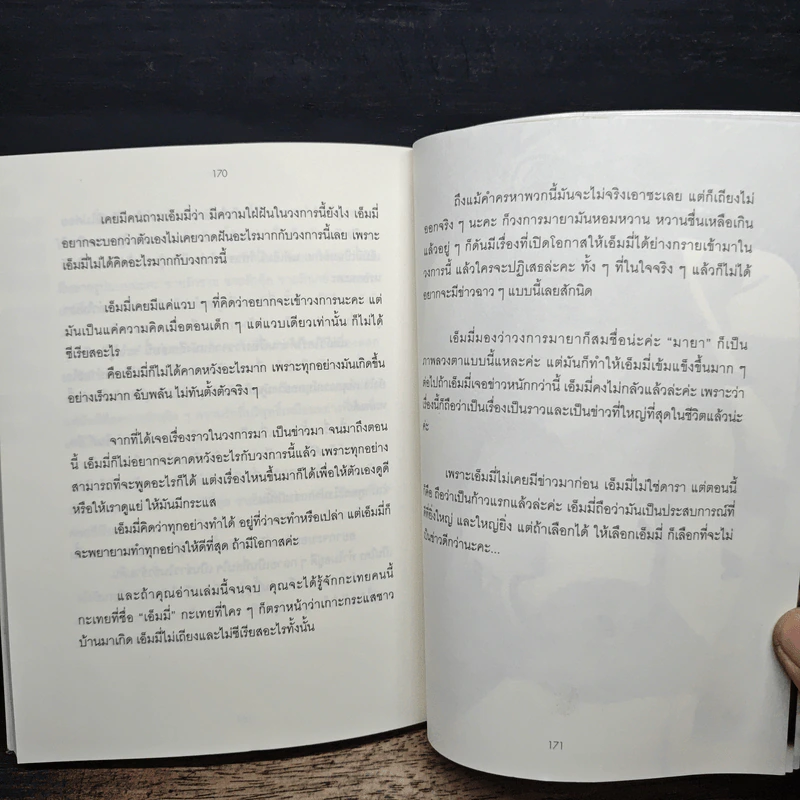 170
เคยมีคนถามเอ็มมี่ว่า มีความใฝ่ฝันในวงการนี้ยังไง เอ็มมี่
อยากจะบอกว่าตัวเองไม่เคยวาดฝันอะไรมากกับวงการนี้เลย เพราะ
เอ็มมี่ไม่ได้คิดอะไรมากกับวงการนี้
เอ็มมี่เคยมีแค่แวบ ๆ ที่คิดว่าอยากจะเข้าวงการนะคะ แต่
มันเป็นแค่ความคิดเมื่อตอนเด็ก ๆ แต่แวบเดียวเท่านั้น ก็ไม่ได้
ซีเรียสอะไร
คือเอ็มมี่ก็ไม่ได้คาดหวังอะไรมาก เพราะทุกอย่างมันเกิดขึ้น
อย่างเร็วมาก ฉับพลัน ไม่ทันตั้งตัวจริง ๆ
จากที่ได้เจอเรื่องราวในวงการมา เป็นข่าวมา จนมาถึงตอน
นี้ เอ็มมี่ก็ไม่อยากจะคาดหวังอะไรกับวงการนี้แล้ว เพราะทุกอย่าง
สามารถที่จะพูดอะไรก็ได้ แต่งเรื่องไหนขึ้นมาก็ได้เพื่อให้ตัวเองดูดี
หรือให้เราดูแย่ ให้มันมีกระแส
เอ็มมี่คิดว่าทุกอย่างทำได้ อยู่ที่ว่าจะทำหรือเปล่า แต่เอ็มมี่ก็
จะพยายามทำทุกอย่างให้ดีที่สุด ถ้ามีโอกาสค่ะ
และถ้าคุณอ่านเล่มนี้จนจบ คุณจะได้รู้จักกะเทยคนนี้
กะเทยที่ชื่อ “เอ็มมี่” กะเทยที่ใคร ๆ ก็ตราหน้าว่าเกาะกระแสชาว
บ้านมาเกิด เอ็มมี่ไม่เถียงและไม่ซีเรียสอะไรทั้งนั้น
ถึงแม้คำครหาพวกนี้มันจะไม่จริงเอาซะเลย แต่ก็เถียงไม่
ออกจริง ๆ นะคะ ก็วงการมายามันหอมหวาน หวานชื่นเหลือเกิน
แล้วอยู่ ๆ ก็ดันมีเรื่องที่เปิดโอกาสให้เอ็มมี่ได้ย่างกรายเข้ามาใน
วงการนี้ แล้วใครจะปฏิเสธล่ะคะ ทั้ง ๆ ที่ในใจจริง ๆ แล้วก็ไม่ได้
อยากจะมีข่าวฉาว ๆ แบบนี้เลยสักนิด
เอ็มมี่มองว่าวงการมายาก็สมชื่อน่ะค่ะ “มายา” ก็เป็น
ภาพลวงตาแบบนี้แหละค่ะ แต่มันก็ทำให้เอ็มมี่เข้มแข็งขึ้นมาก ๆ
ต่อไปถ้าเอ็มมี่เจอข่าวหนักกว่านี้ เอ็มมี่คงไม่กลัวแล้วล่ะค่ะ เพราะว่า
เรื่องนี้ก็ถือว่าเป็นเรื่องเป็นราวและเป็นข่าวที่ใหญ่ที่สุดในชีวิตแล้วน่ะ
ค่ะ
เพราะเอ็มมี่ไม่เคยมีข่าวมาก่อน เอ็มมี่ไม่ใช่ดารา แต่ตอนนี้
ก็คือ ถือว่าเป็นก้าวแรกแล้วล่ะค่ะ เอ็มมี่ถือว่ามันเป็นประสบการณ์ที่
ที่ยิ่งใหญ่ และใหญ่ยิ่ง แต่ถ้าเลือกได้ ให้เลือกเอ็มมี่ ก็เลือกที่จะไม่
เป็นข่าวดีกว่านะคะ...
171